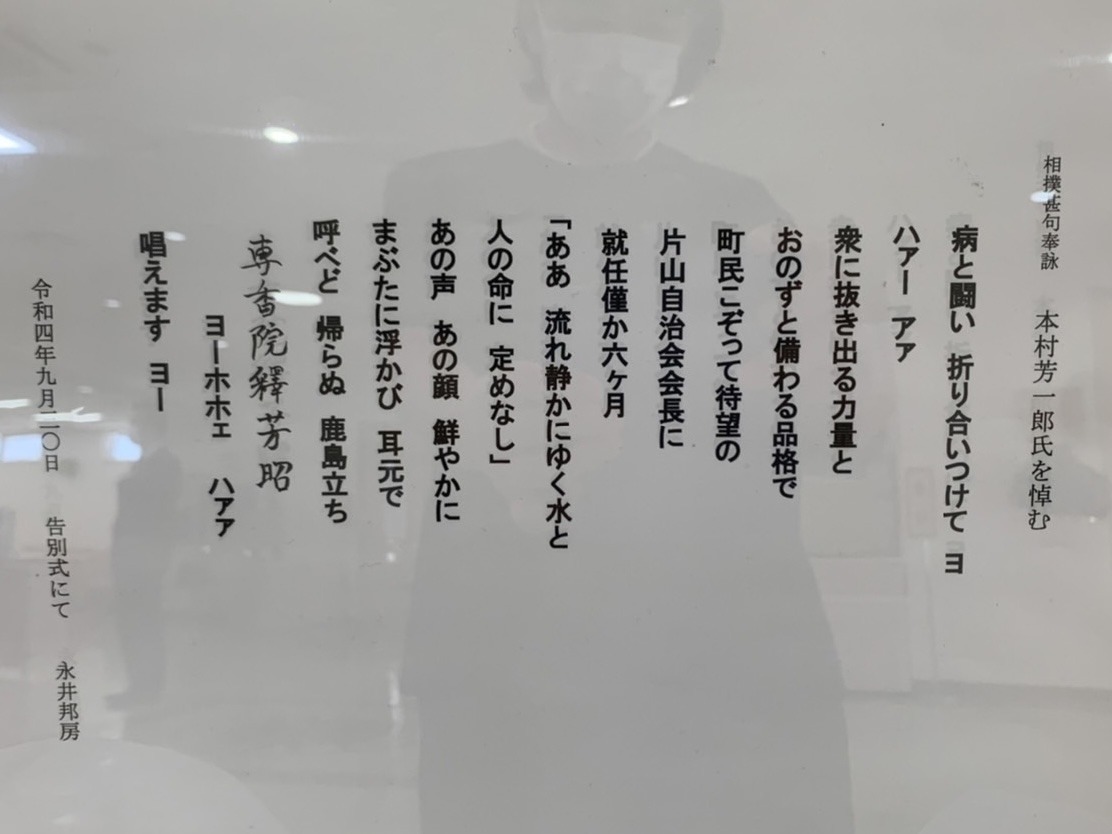 相撲甚句奉詠 本村芳一郎氏を悼む
病と闘い 折り合いつけて ヨ
ハァー アァ
衆に抜き出る力量と
おのずと備わる品格で
町民こぞって待望の
片山自治会会長に
就任僅か六ヶ月
「ああ 流れ静かにゆく水と
人の命に 定めなし」
あの声 あの顔 鮮やかに
まぶたに浮かび 耳元で
呼べど 帰らぬ 鹿島立ち
専香院釋芳昭
ヨーホホェ ハァァ
唱えます ヨー
令和四年九月二〇日 告別式にて 永井邦房